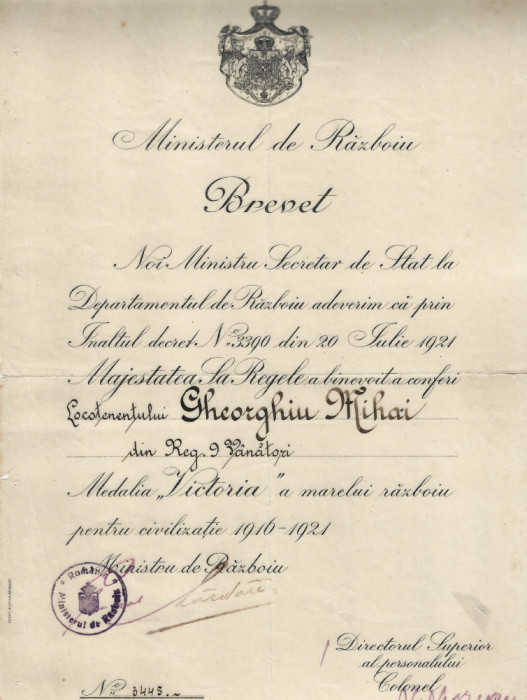 Ministerul de Războiu
Brevet
Noi Ministru Secretar de Stat la
Departamentul de Războiu adeverim că prin
Înaltul decret No 3390 din 20 Iulie 1921
Majestatea Sa Regele a binevoit a conferi
Locotenentului Gheorghiu Mihai
din Reg. 9 Vânători
Medalia „Victoria" a marelui războiu
pentru civilizație 1916-1921
Ministru de Războiu
România
Ministerul de Războiu
Directorul Superior
al personalului
Colonel
No 3445.-